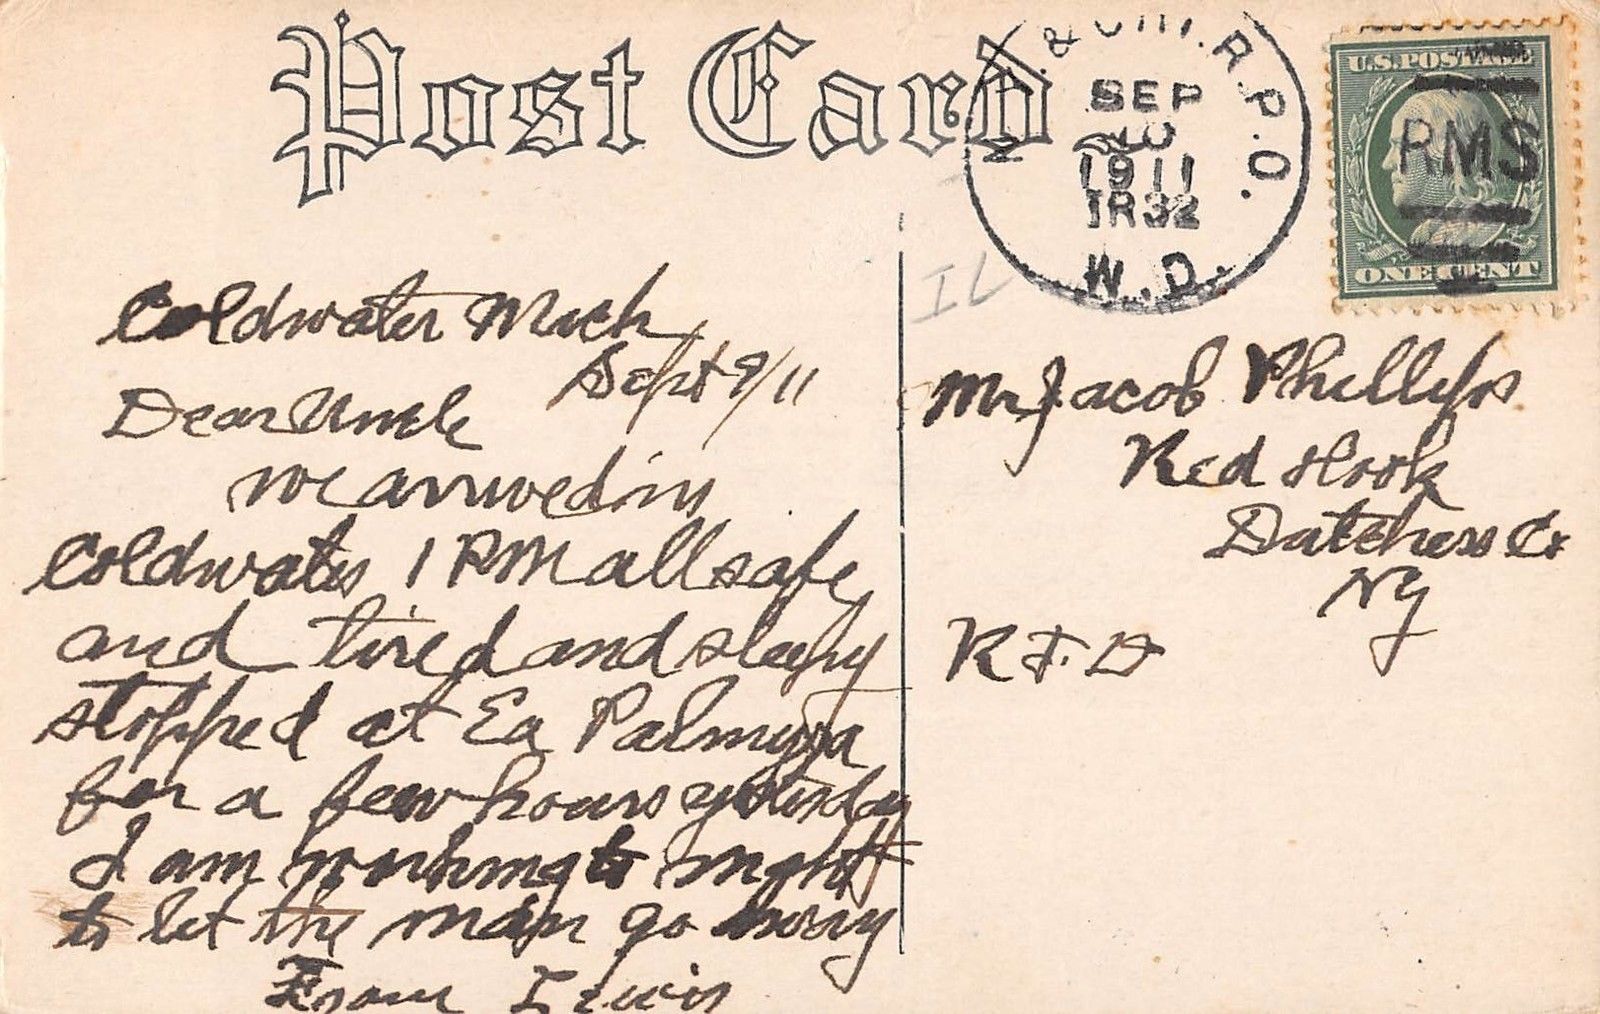 Post Card
N.Y. & CHI. R.P.O.
SEP
20
1911
TR32
W.D.
U.S. POSTAGE
RMS
ONE CENT
IL
Coldwater Mich
Sept 9/11
Dear Uncle
we arrived in
Coldwater 1 PM all safe
and tired and sleepy
stopped at Ea Palmyra
for a few hours yesterday
I am working to night
to let the man go away
From Lewis
Mr Jacob Phillyps
Red Hook
Dutchess Co
NY
R F. D